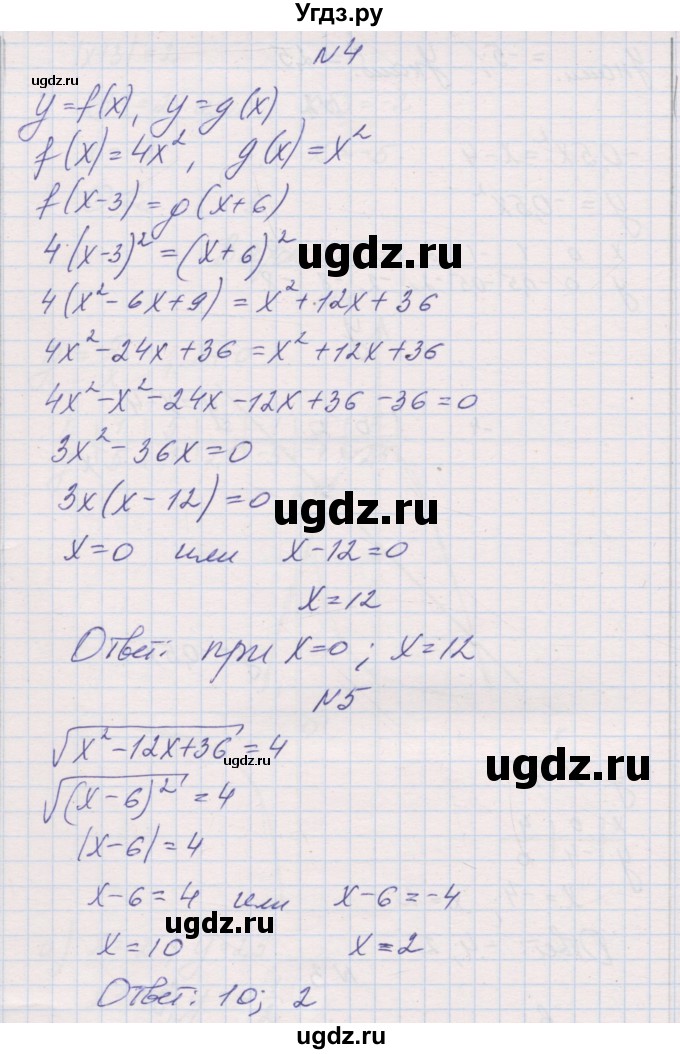 Угдз.ру
№4
y=f(x), y=g(x)
f(x)=4x², g(x)=x²
f(x-3)=g(x+6)
4(x-3)²=(x+6)²
4(x²-6x+9)=x²+12x+36
4x²-24x+36=x²+12x+36
4x²-x²-24x-12x+36-36=0
3x²-36x=0
3x(x-12)=0
x=0 или x-12=0
x=12
Ответ: при x=0; x=12
№5
√(x²-12x+36)=4
√((x-6)²)=4
|x-6|=4
x-6=4 или x-6=-4
x=10 x=2
Ответ: 10; 2
ugdz.ru
ugdz.ru
ugdz.ru
ugdz.ru
ugdz.ru
ugdz.ru
ugdz.ru
ugdz.ru